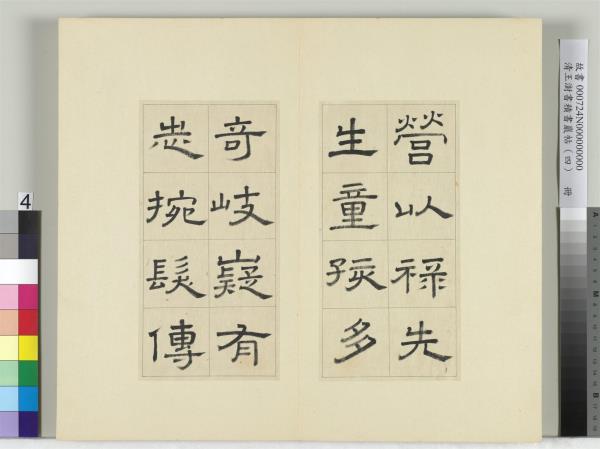 營以祿先
生童孩多
奇岐嶷有
志捥髮傳
故書 000724N000000000
清王澍書積書巖帖（四） 冊
4
A
M
B